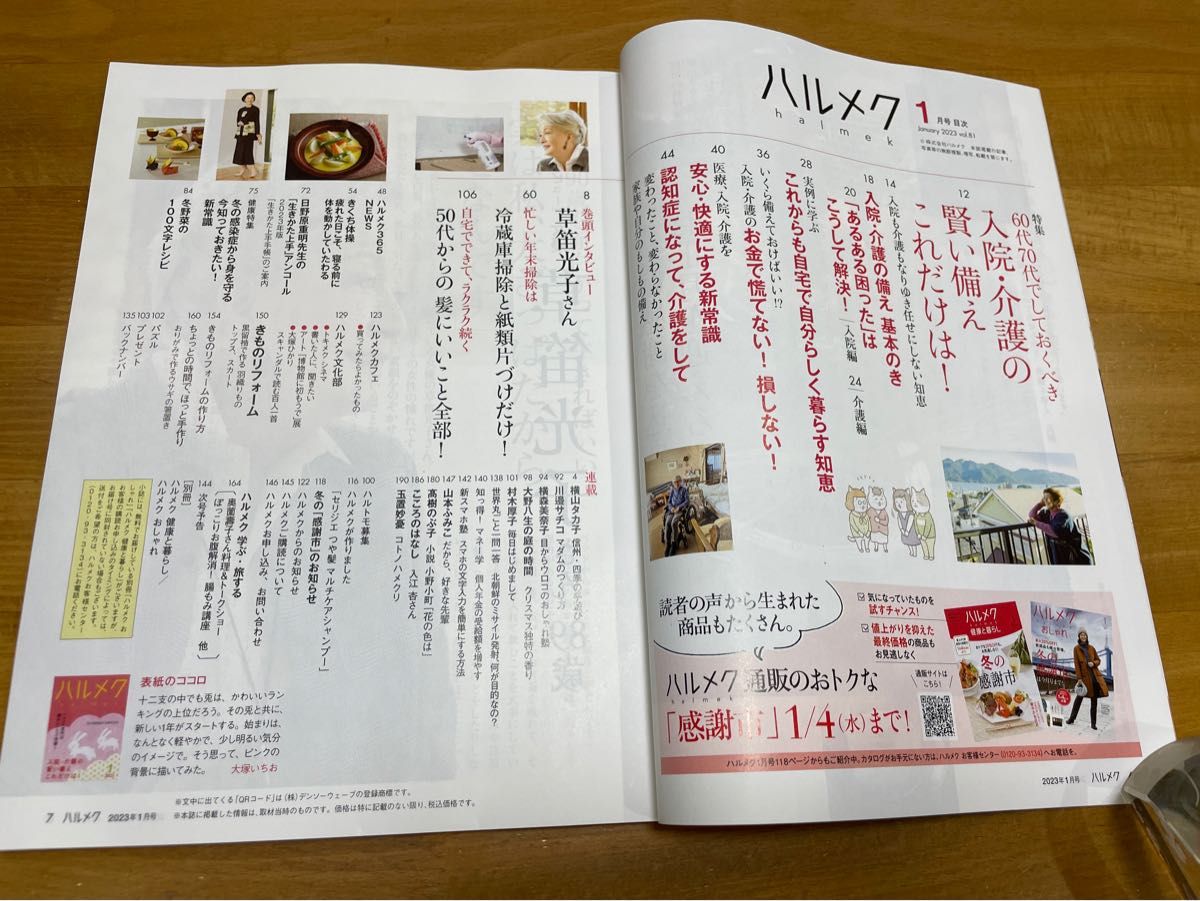 ハルメク
halmek
1月号 目次
January 2023 vol.81
©株式会社ハルメク 本誌掲載の記事、
写真等の無断複製、複写、転載を禁じます。
特集
60代70代でしておくべき
12
入院・介護の
賢い備え
これだけは!
14 入院も介護もなりゆき任せにしない知恵
18
入院・介護の備え 基本のき
20
「あるある困った」は
こうして解決!
入院編
24 介護編
28
実例に学ぶ
これからも自宅で自分らしく暮らす知恵
36
いくら備えておけばいい!?
入院・介護のお金で慌てない! 損しない!
40
医療、入院、介護を
安心・快適にする新常識
44
認知症になって、介護をして
変わったこと、変わらなかったこと
家族や自分のもしもの備え
読者の声から生まれた
商品もたくさん。
気になっていたものを
試すチャンス!
値上がりを抑えた
最終価格の商品も
お見逃しなく
通販サイトは
こちら!
ハルメク
健康と暮らし
冬の
感謝市
ハルメク
おしゃれ
冬の
ハルメク 通販のおトクな
halmek
「感謝市」1/4(水)まで!
ハルメク1月号118ページからもご紹介中。カタログがお手元にない方は、ハルメク お客様センター(0120-93-3134)へお電話を。
2023年1月号 ハルメク
8
巻頭インタビュー
草笛光子さん
60
忙しい年末掃除は
冷蔵庫掃除と紙類片づけだけ!
106
自宅でできて、ラクラク続く
50代からの 髪にいいこと全部!
48
ハルメク365
NEWS
54
きくち体操
疲れた日こそ、寝る前に
体を動かしていたわる
72
日野原重明先生の
「生きかた上手」アンコール
2023年版
「生きかた上手手帳」のご案内
75
健康特集
冬の感染症から身を守る
今知っておきたい!
新常識
84
冬野菜の
100文字レシピ
123
ハルメクカフェ
●買ってみたらよかったもの
129
ハルメク文化部
●トキメク・シネマ
●書いた人に、聞きたい
●アート「博物館に初もうで」展
●大塚ひかり
スキャンダルで読む百人一首
150
きものリフォーム
黒留袖で作る 羽織りもの
トップス、スカート
154
きものリフォームの作り方
160
ちょっとの時間で、ほっと手作り
おりがみで作るウサギの箸置き
102
パズル
103
プレゼント
135
バックナンバー
連載
4 横山タカ子 信州・四季の手遊び
92 川邉サチコ マダムのつくり方
94 横森美奈子 目からウロコのおしゃれ塾
98 大野八生の庭の時間 クリスマス独特の香り
101 村木厚子 毎日はじめまして
138 世界丸ごと一問一答 北朝鮮のミサイル発射、何が目的なの?
140 知っ得!マネー学 個人年金の受給額を増やす
142 新スマホ塾 スマホの文字入力を簡単にする方法
147 山本ふみこ だから、好きな先輩
180 高樹のぶ子 小説 小野小町「花の色は」
186 こころのはなし 入江 杏さん
190 玉置妙憂 コトノハメクリ
100 ハルトモ募集
116 ハルメクが作りました
「セリジエ つや髪 マルチケアシャンプー」
118 冬の「感謝市」のお知らせ
122 ハルメクからのお知らせ
145 ハルメクご購読について
146 ハルメクお申し込み、お問い合わせ
164 ハルメク 学ぶ・旅する
黒薗壽子さん料理&トークショー
「ぽっこりお腹解消!腸もみ講座 他」
144 次号予告
[別冊]
ハルメク 健康と暮らし/
ハルメク おしゃれ
表紙のココロ
十二支の中でも兎は、かわいいラン
キングの上位だろう。その兎と共に、
新しい1年がスタートする。始まりは、
なんとなく軽やかで、少し明るい気分
のイメージで。そう思って、ピンクの
背景に描いてみた。 大塚いちお
※文中に出てくる「QRコード」は(株)デンソーウェーブの登録商標です。
※本誌に掲載した情報は、取材当時のものです。価格は特に記載のない限り、税込価格です。
7 ハルメク 2023年1月号